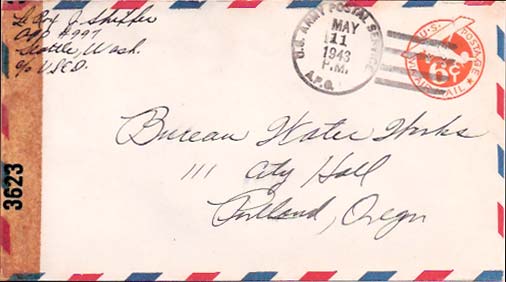 Le Roy J. Shipper
APO #997
Seattle, Wash.
c/o U.S.E.D.
U.S. ARMY POSTAL SERVICE
MAY
11
1943
P.M.
A.P.O.
U.S. POSTAGE
6¢
VIA AIR MAIL
Bureau Water Works
111 City Hall
Portland, Oregon
3623